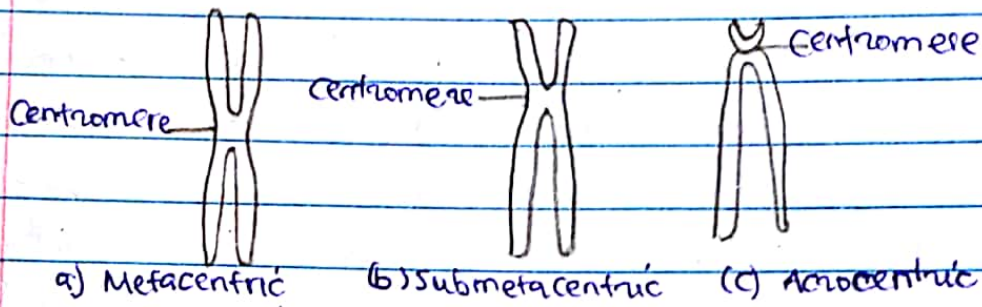 Centromere
Centromere
Centromere
a) Metacentric
(b) Submetacentric
(c) Acrocentric